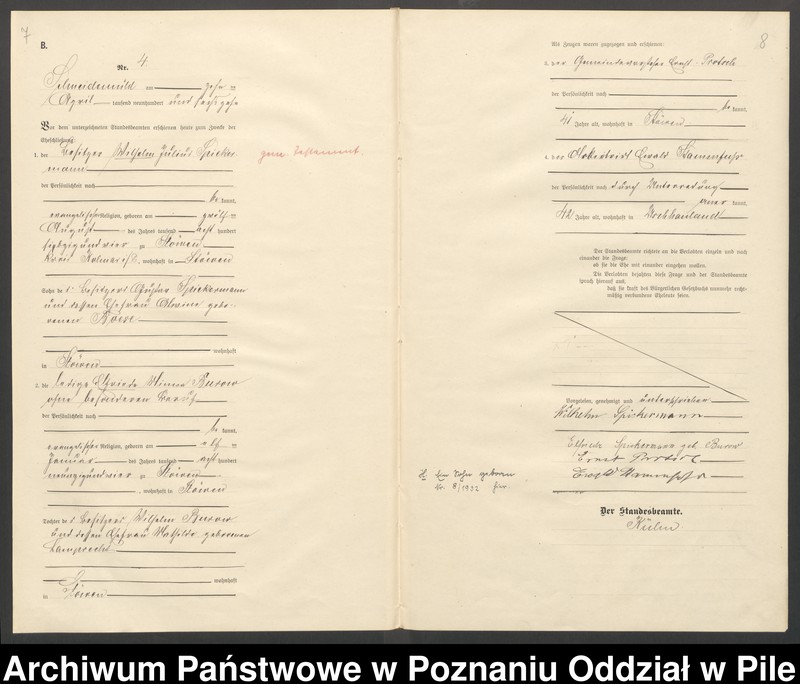 7
B.
Nr. 4
Schneidemühl am zehn ten
April tausend neunhundert und sechzehn
Vor dem unterzeichneten Standesbeamten erschienen heute zum Zwecke der
Eheschließung:
1. der Besitzer Wilhelm Julius Spieker
mann
gem. Testament.
der Persönlichkeit nach
be kannt,
evangelischer Religion, geboren am
August des Jahres tausend acht hundert
siebzigundvier zu Stöwen
Kreis Kolmar i/P., wohnhaft in Stöwen
Sohn des Besitzers Gustav Spiekermann
und dessen Ehefrau
renen
wohnhaft
in Stöwen
2. die ledige Elfriede Minna Burow
ohne besonderen Beruf
der Persönlichkeit nach
be kannt,
evangelischer Religion, geboren am elf ten
Januar des Jahres tausend acht hundert
neunzigundvier zu Stöwen
, wohnhaft in Stöwen
Tochter des Besitzers Wilhelm Burow
und dessen Ehefrau Mathilde geborenen
wohnhaft
in Stöwen
8
Als Zeugen waren zugezogen und erschienen:
3. der Gemeindevorsteher Ernst
der Persönlichkeit nach
be kannt,
41 Jahre alt, wohnhaft in Stöwen
4. der Ewald
der Persönlichkeit nach durch Unterredung
kannt,
42 Jahre alt, wohnhaft in
Der Standesbeamte richtete an die Verlobten einzeln und nach
einander die Frage:
ob sie die Ehe mit einander eingehen wollen.
Die Verlobten bejahten diese Frage und der Standesbeamte
sprach hierauf aus,
daß sie kraft des Bürgerlichen Gesetzbuchs nunmehr recht-
mäßig verbundene Eheleute seien.
Vorgelesen, genehmigt und unterschrieben
Wilhelm Spiekermann
Elfriede Spiekermann geb. Burow
Ernst
Ewald
Ein Sohn geboren
Nr. 8/1922
Der Standesbeamte.
Archiwum Państwowe w Poznaniu Oddział w Pile